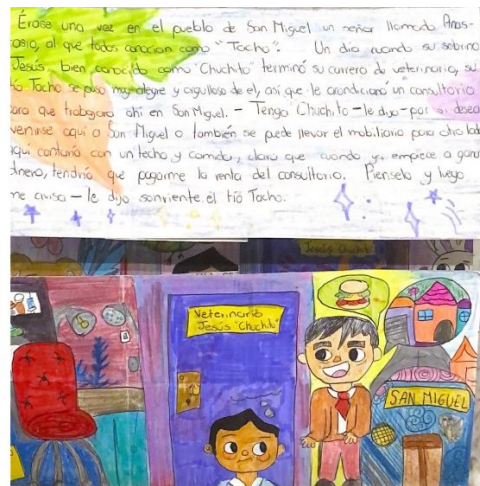 Érase una vez en el pueblo de San Miguel un señor llamado Anas-
tasio, al que todos conocían como "Tacho". Un día cuando su sobrino
Jesús, bien conocido como "Chuchito" terminó su carrera de veterinario, su
tío Tacho se puso muy alegre y orgulloso de el, así que le acondicionó un consultorio
para que trabajara ahí en San Miguel. - Tengo Chuchito - le dijo - por si desea
venirse aquí a San Miguel o también se puede llevar el mobiliario para otro lado
aquí contaría con un techo y comida, claro que cuando ya empiece a ganar
dinero, tendría que pagarme la renta del consultorio. Pienselo y luego
me avisa - le dijo sonriente el tío Tacho.
Jesús Chuchito
Veterinario
Jesús "Chuchito"
SAN MIGUEL